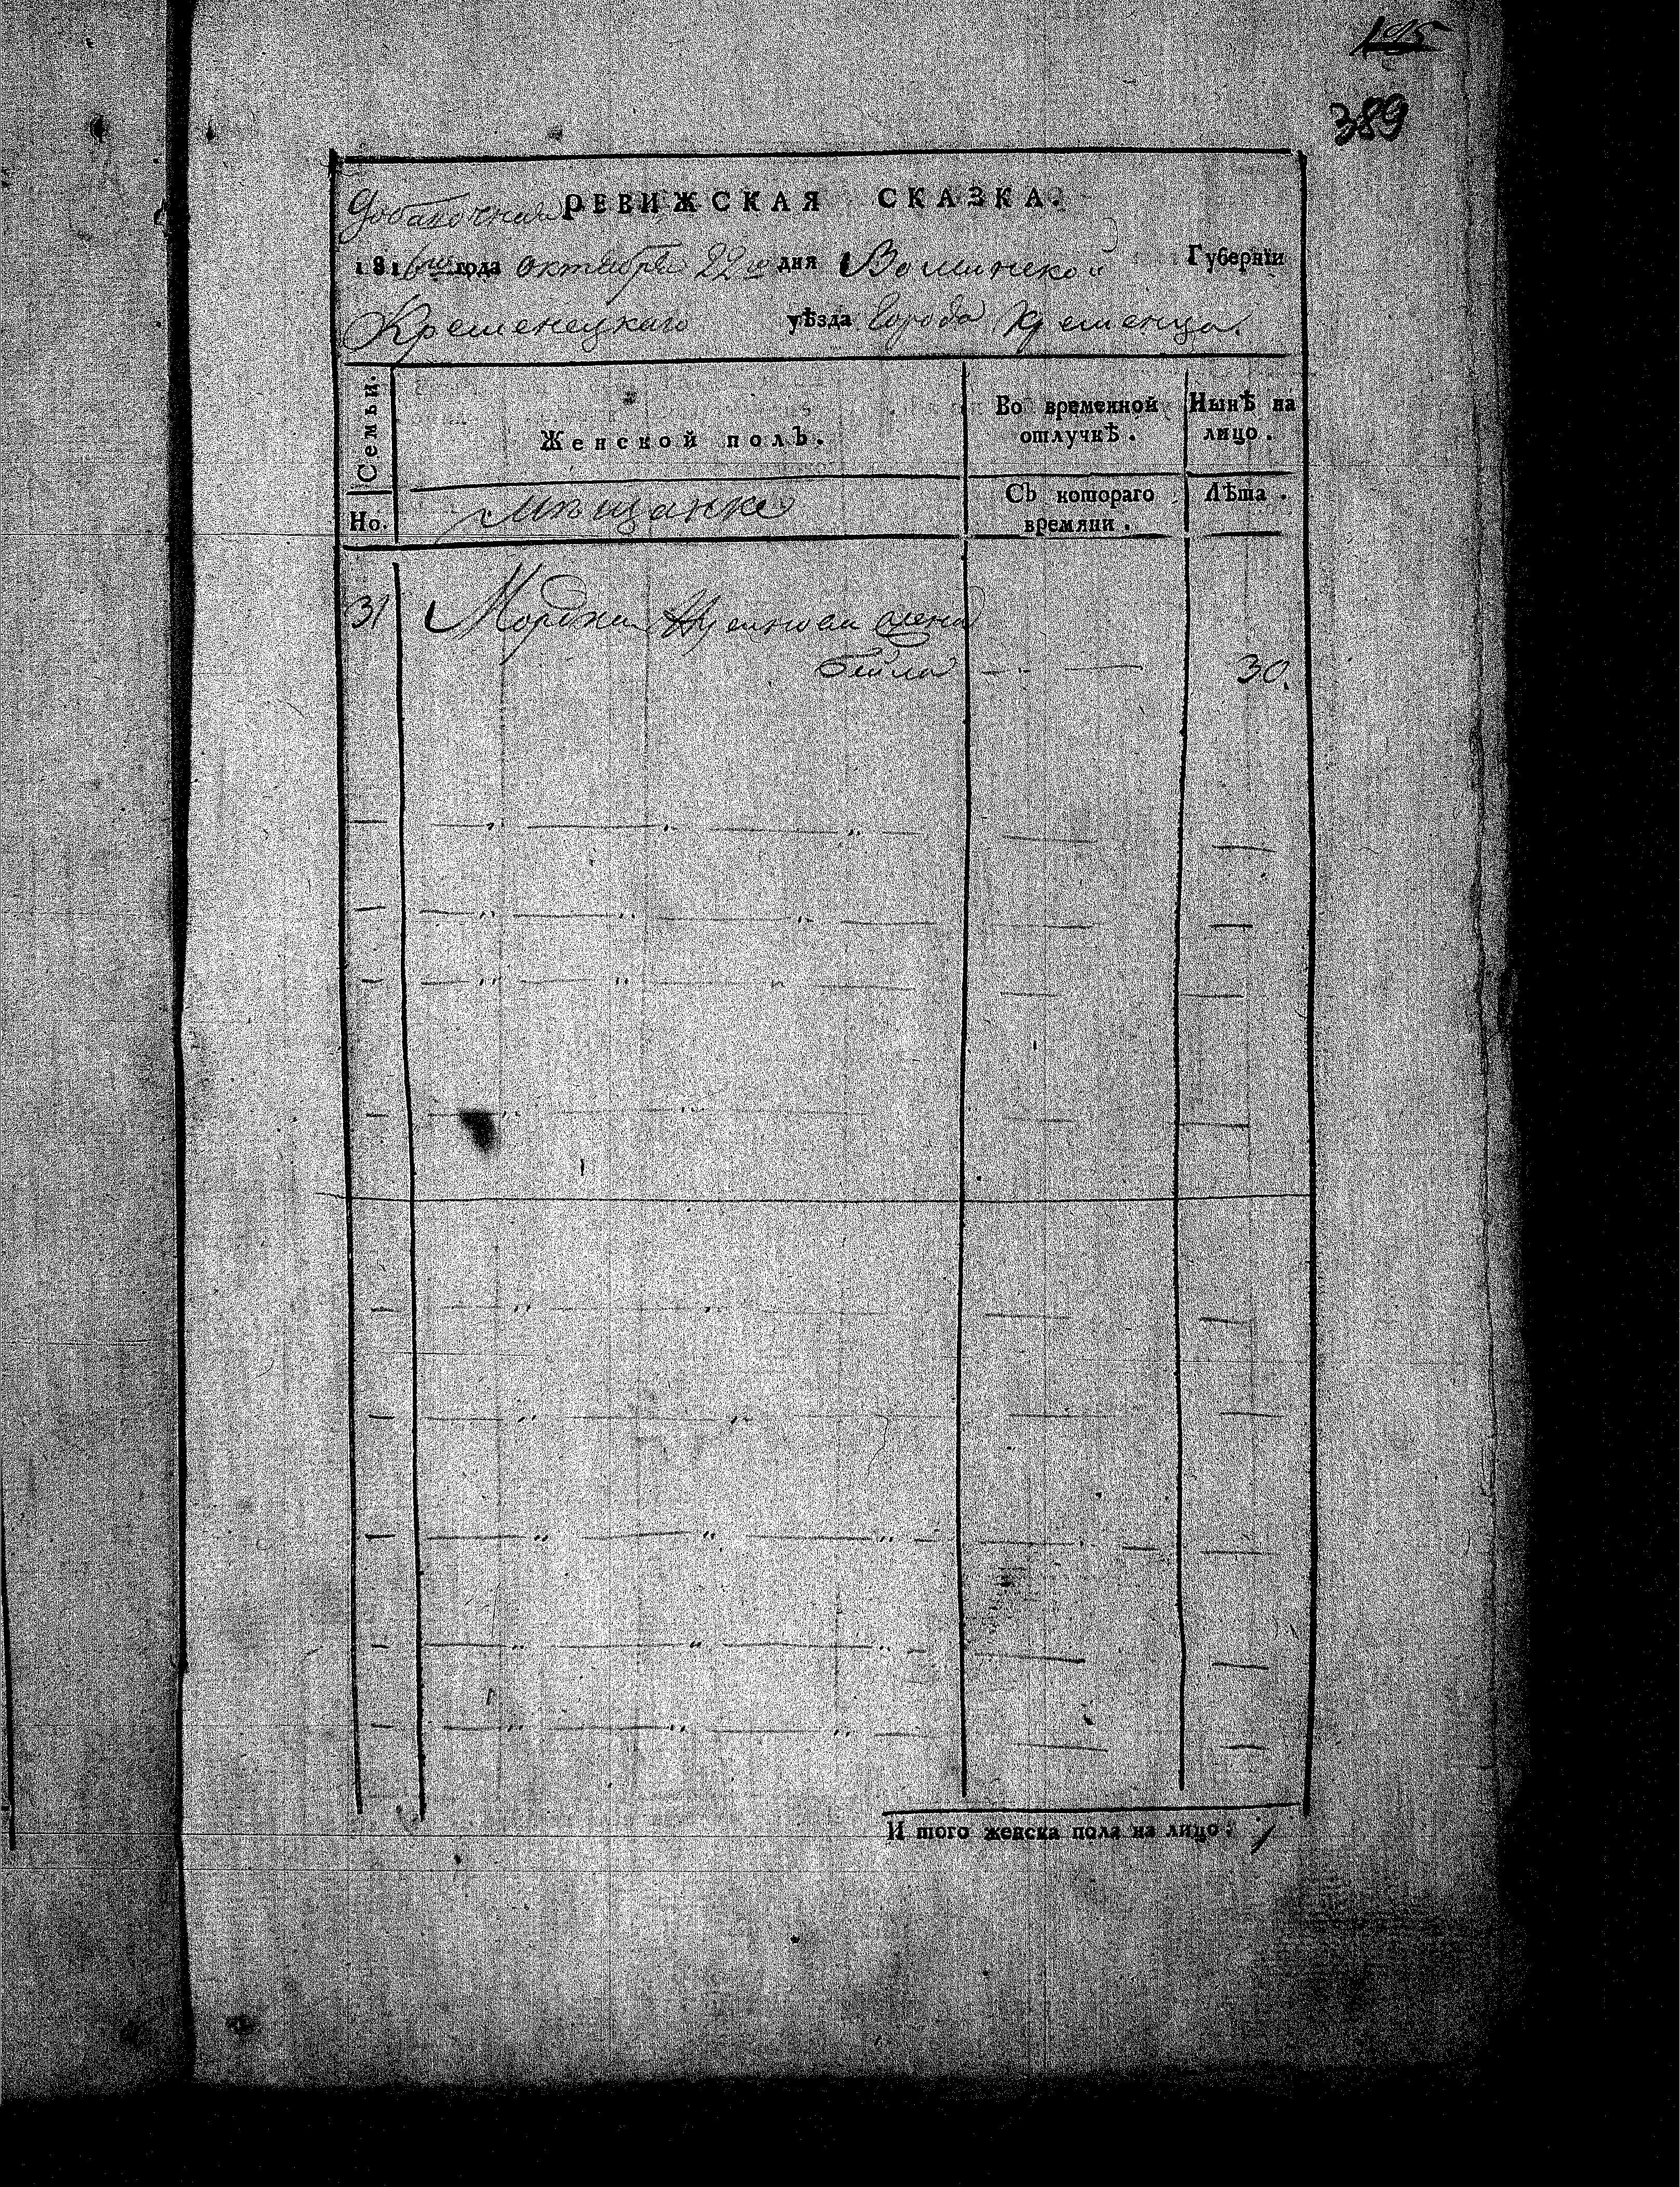 389
Добавочная РЕВИЖСКАЯ СКАЗКА.
1816го года октября 22го дня Волынской Губернїи
Кременецкаго уѣзда города Кременца.
Семьи.
Женской полъ.
Во временной отлучкѣ.
Нынѣ на лицо.
Но.
Мѣщанке
Съ котораго времяни.
Лѣта.
31 Мордка жена
бейла 30.
И того женска пола на лицо: 1